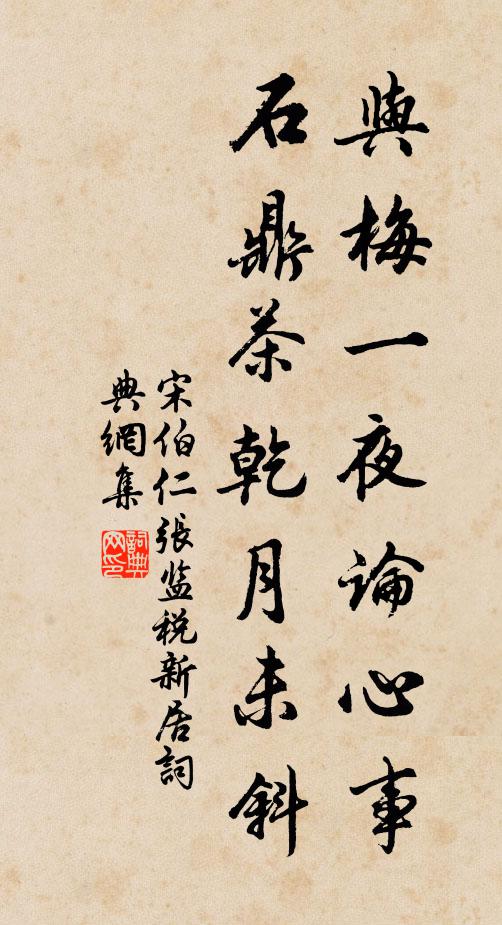 與梅一夜論心事
石鼎茶乾月未斜
宋伯仁張监税新居詞
典網集
詞典
网印